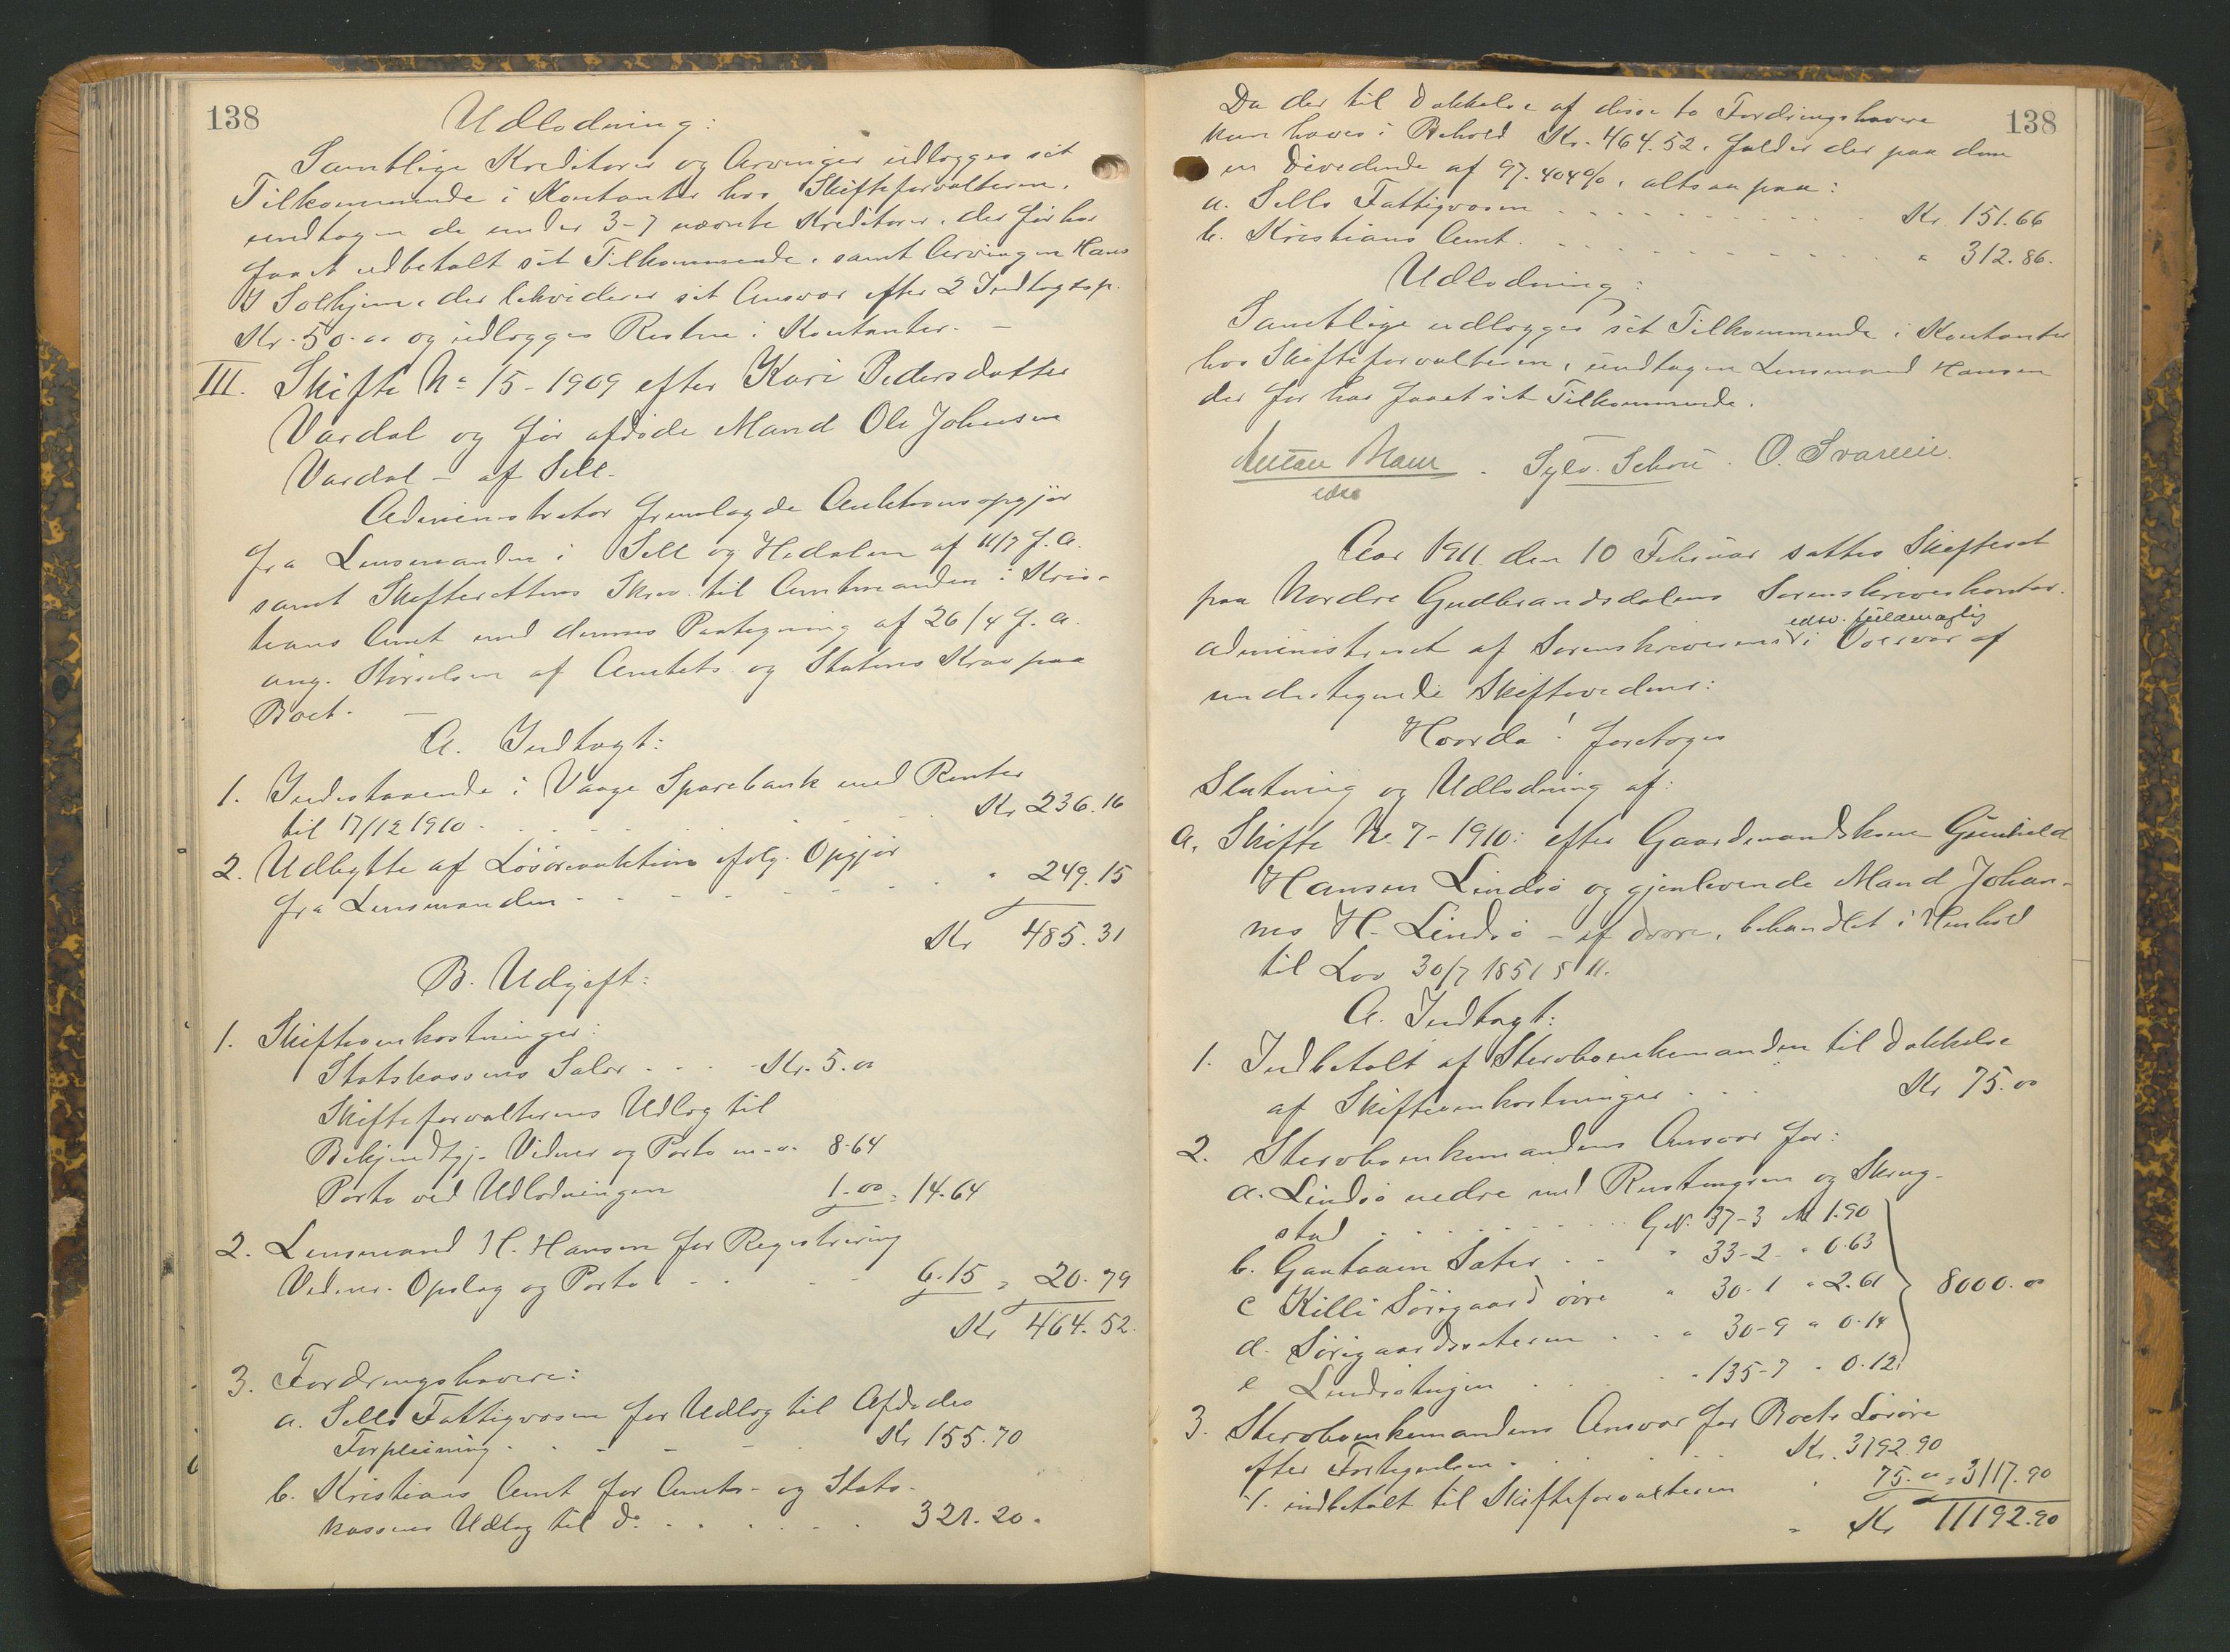 138
Udlodning:
Samtlige Kreditorer og Arvinger udlægges sit
Tilkommende i Kontanter hos Skifteforvalteren,
undtagen de under 3-7 nævnte Kreditorer, der før har
faaet udbetalt sit Tilkommende, samt Arvingen Hans
Solhjem, der likviderer sit Ansvar efter 2 Indtægtsp.
Kr. 50.00 og udlægges Resten i Kontanter. -
III. Skifte No 15-1909 efter Kari Pedersdatter
Vardal og før afdøde Mand Ole Johnsen
Vardal - af Sell.
Administrator fremlagde Auktionsopgjør
fra Lensmanden i Sell og Hedalen af 11/7 f.a.
samt Skifterettens Skriv. til Amtmanden i Kris-
tians Amt med dennes Paategning af 26/4 f.a.
ang. Størrelsen af Amtets og Statens Krav paa
Boet. -
A. Indtægt:
1. Indestaaende i Vaage Sparebank med Renter
til 17/12 1910 . . . . . . Kr 236.16
2. Udbytte af Løsøreauktion ifølg. Opgjør
fra Lensmanden - - - - - - " 249.15
Kr 485.31
B. Udgift:
1. Skifteomkostninger:
Statskassens Salær . . . Kr. 5.00
Skifteforvalterens Udlæg til
Bekjendtgj. Vidner og Porto m.v. 8.64
Porto ved Udlodningen 1.00 = 14.64
2. Lensmand H. Hansen for Registrering
Vidner. Opslag og Porto . . . . 6.15 = 20.79
Kr 464.52.
3. Fordringshavere:
a. Sells Fattigvæsen for Udlæg til Afdødes
Forpleining . - - - . Kr 155.70
b. Kristians Amt for Amts- og Stats-
kassens Udlæg til do . . . . . . 321.20.
138
Da der til Dækkelse af disse to Fordringshavere
kun haves i Behold Kr. 464.52, falder der paa dem
en Dividende af 97.404%, altsaa paa:
a. Sells Fattigvæsen . . . . . . Kr. 151.66
b. Kristians Amt . . . . . . " 312.86.
Udlodning:
Samtlige udlægges sit Tilkommende i Kontanter
hos Skifteforvalteren, undtagen Lensmand Hansen
der før har faaet sit Tilkommende.
Sylv. Schou. O. Svarein.
edsv
Aar 1911 den 10 Februar sattes Skifteret
paa Nordre Gudbrandsdalens Sorenskriverkontor.
edsv. fuldmægtig
administreret af Sorenskriverens i Overvær af
undertegnede Skiftevidner:
Hvorda! foretoges
Slutning og Udlodning af:
a. Skifte No. 7-1910: efter Gaardmandskone Gunhild
Hansen Lindsø og gjenlevende Mand Johan-
nes H. Lindsø - af Dovre, behandlet i Henhold
til Lov 30/7 1851 § 11.
A. Indtægt:
1. Indbetalt af Stervboenkemanden til Dækkelse
af Skifteomkostninger . . . Kr 75.00
2. Stervboenkemandens Ansvar for:
a. Lindsø nedre med Rustengren og Skrug-
stad . . . . . . G.N. 37-3 M 1.90
b. Gautaaen Sæter . . " 33-2 " 0.63
c Killi Sørigaard øvre " 30-1 " 2.61 8000.00
d. Sørigaardssæteren . . " 30-9 " 0.14
e Lindsøteigen . . . . " 135-7 " 0.12
3. Stervboenkemandens Ansvar for Boets Løsøre
efter Fortegnelsen . . . . Kr. 3192.90
÷ indbetalt til Skifteforvalteren " 75.00 = 3117.90
" Kr 11192.90